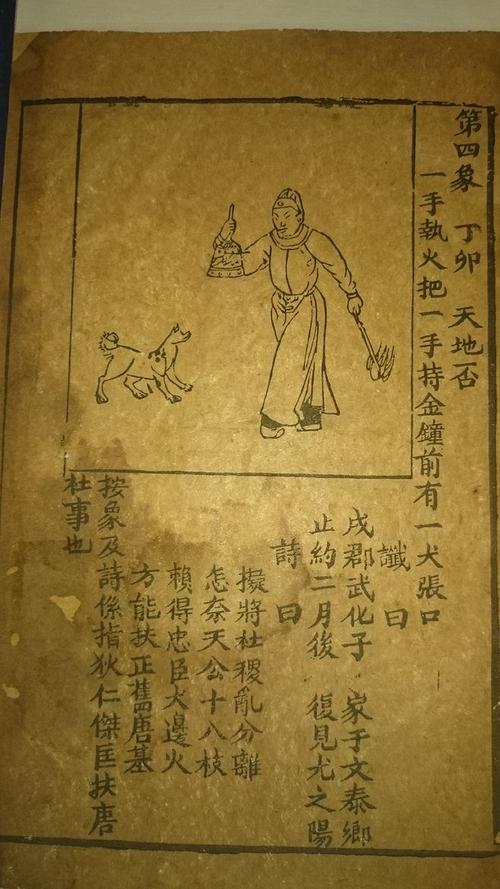 第四象　丁卯　天地否
一手執火把一手持金鐘前有一犬張口
讖曰
戌郡武化子　家于文泰鄉
止約二月後　復見尤之陽
詩曰
擬將社稷亂分離
怎奈天公十八枝
賴得忠臣犬邊火
方能扶正舊唐基
按象及詩係指狄仁傑匡扶唐
社事也